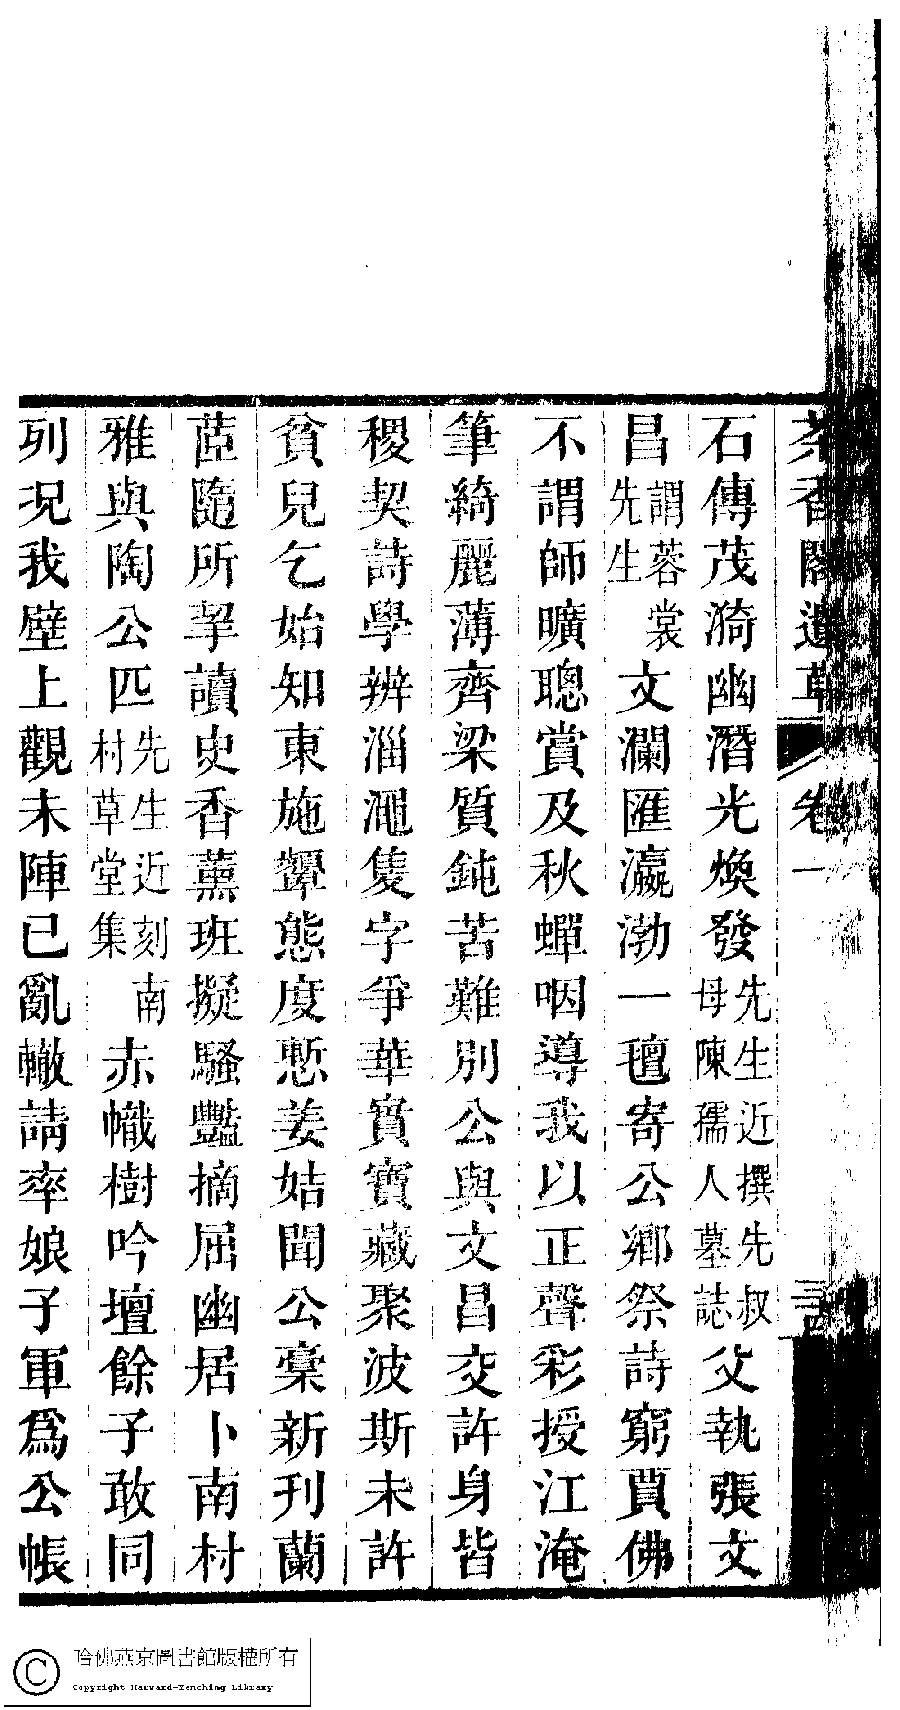 茶香閣遺草 卷一
石傳茂漪幽潛光煥發先生近撰先叔母陳孺人墓誌父執張文
昌謂蓉裳先生文瀾匯瀛渤一氊寄公鄉祭詩窮賈佛
不謂師曠聰賞及秋蟬咽導我以正聲彩授江淹
筆綺麗薄齊梁質鈍苦難別公與文昌交許身皆
稷契詩學辨淄澠隻字爭華實寶藏聚波斯未許
貧兒乞始知東施顰態度慙姜姞聞公稾新刊蘭
茝隨所挈讀史香薰班擬騷豔摘屈幽居卜南村
雅與陶公匹先生近刻南村草堂集赤幟樹吟壇餘子敢同
列况我壁上觀未陣已亂轍請率娘子軍爲公帳
哈佛燕京圖書館版權所有
Copyright Harvard-Yenching Library